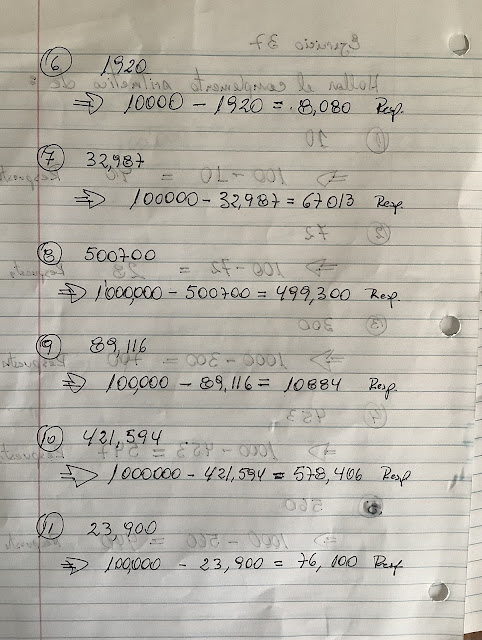 6 1920
⇒ 10000 - 1920 = 8,080 Resp.
7 32,987
⇒ 100000 - 32,987 = 67013 Resp.
8 500700
⇒ 1'000,000 - 500700 = 499,300 Resp.
9 89,116
⇒ 100,000 - 89,116 = 10884 Resp.
10 421,594
⇒ 1000000 - 421,594 = 578,406 Resp
11 23,900
⇒ 100,000 - 23,900 = 76,100 Resp.